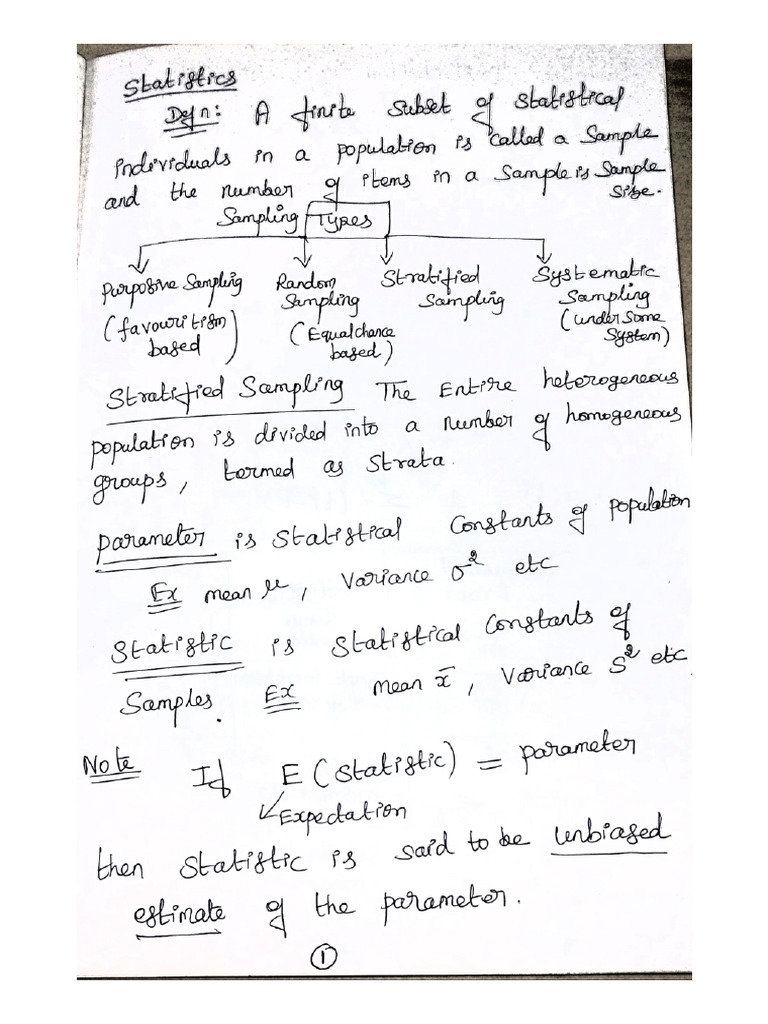 Statistics
Defn: A finite subset of statistical
individuals in a population is called a Sample
and the number of items in a Sample is Sample
Size.
Sampling Types
Purposive Sampling
(favouritism
based)
Random
Sampling
(Equal chance
based)
Stratified
Sampling
Systematic
Sampling
(under some
System)
Stratified Sampling The Entire heterogeneous
population is divided into a number of homogeneous
groups, termed as Strata.
parameter is Statistical Constants of population
Ex mean μ, Variance σ² etc
Statistic is Statistical Constants of
Samples. Ex mean x̄, Variance S² etc
Note If E (Statistic) = parameter
Expectation
then Statistic is said to be unbiased
estimate of the parameter.
①